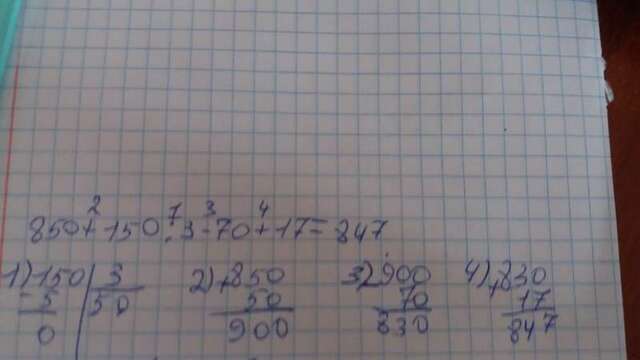 2 1 3 4
850+150:3-70+17=847
1) 150 3 2) 850 3) 900 4) 830
- 3 50 + 50 - 70 + 17
0 900 830 847